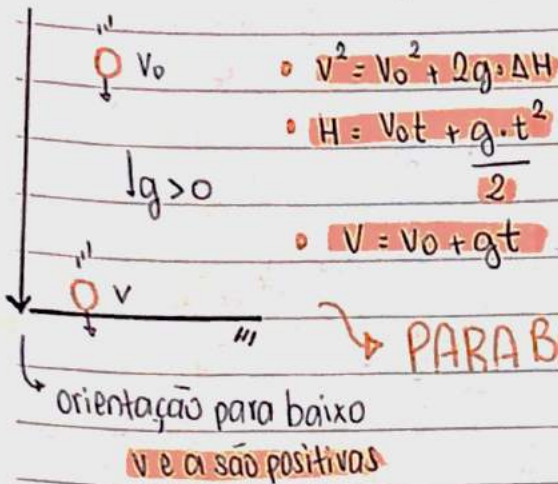 V₀
• V² = V₀² + 2g·ΔH
• H = V₀t + g·t²/2
↓g>0
• V = V₀ + gt
V
PARA B
orientação para baixo
v e a são positivas